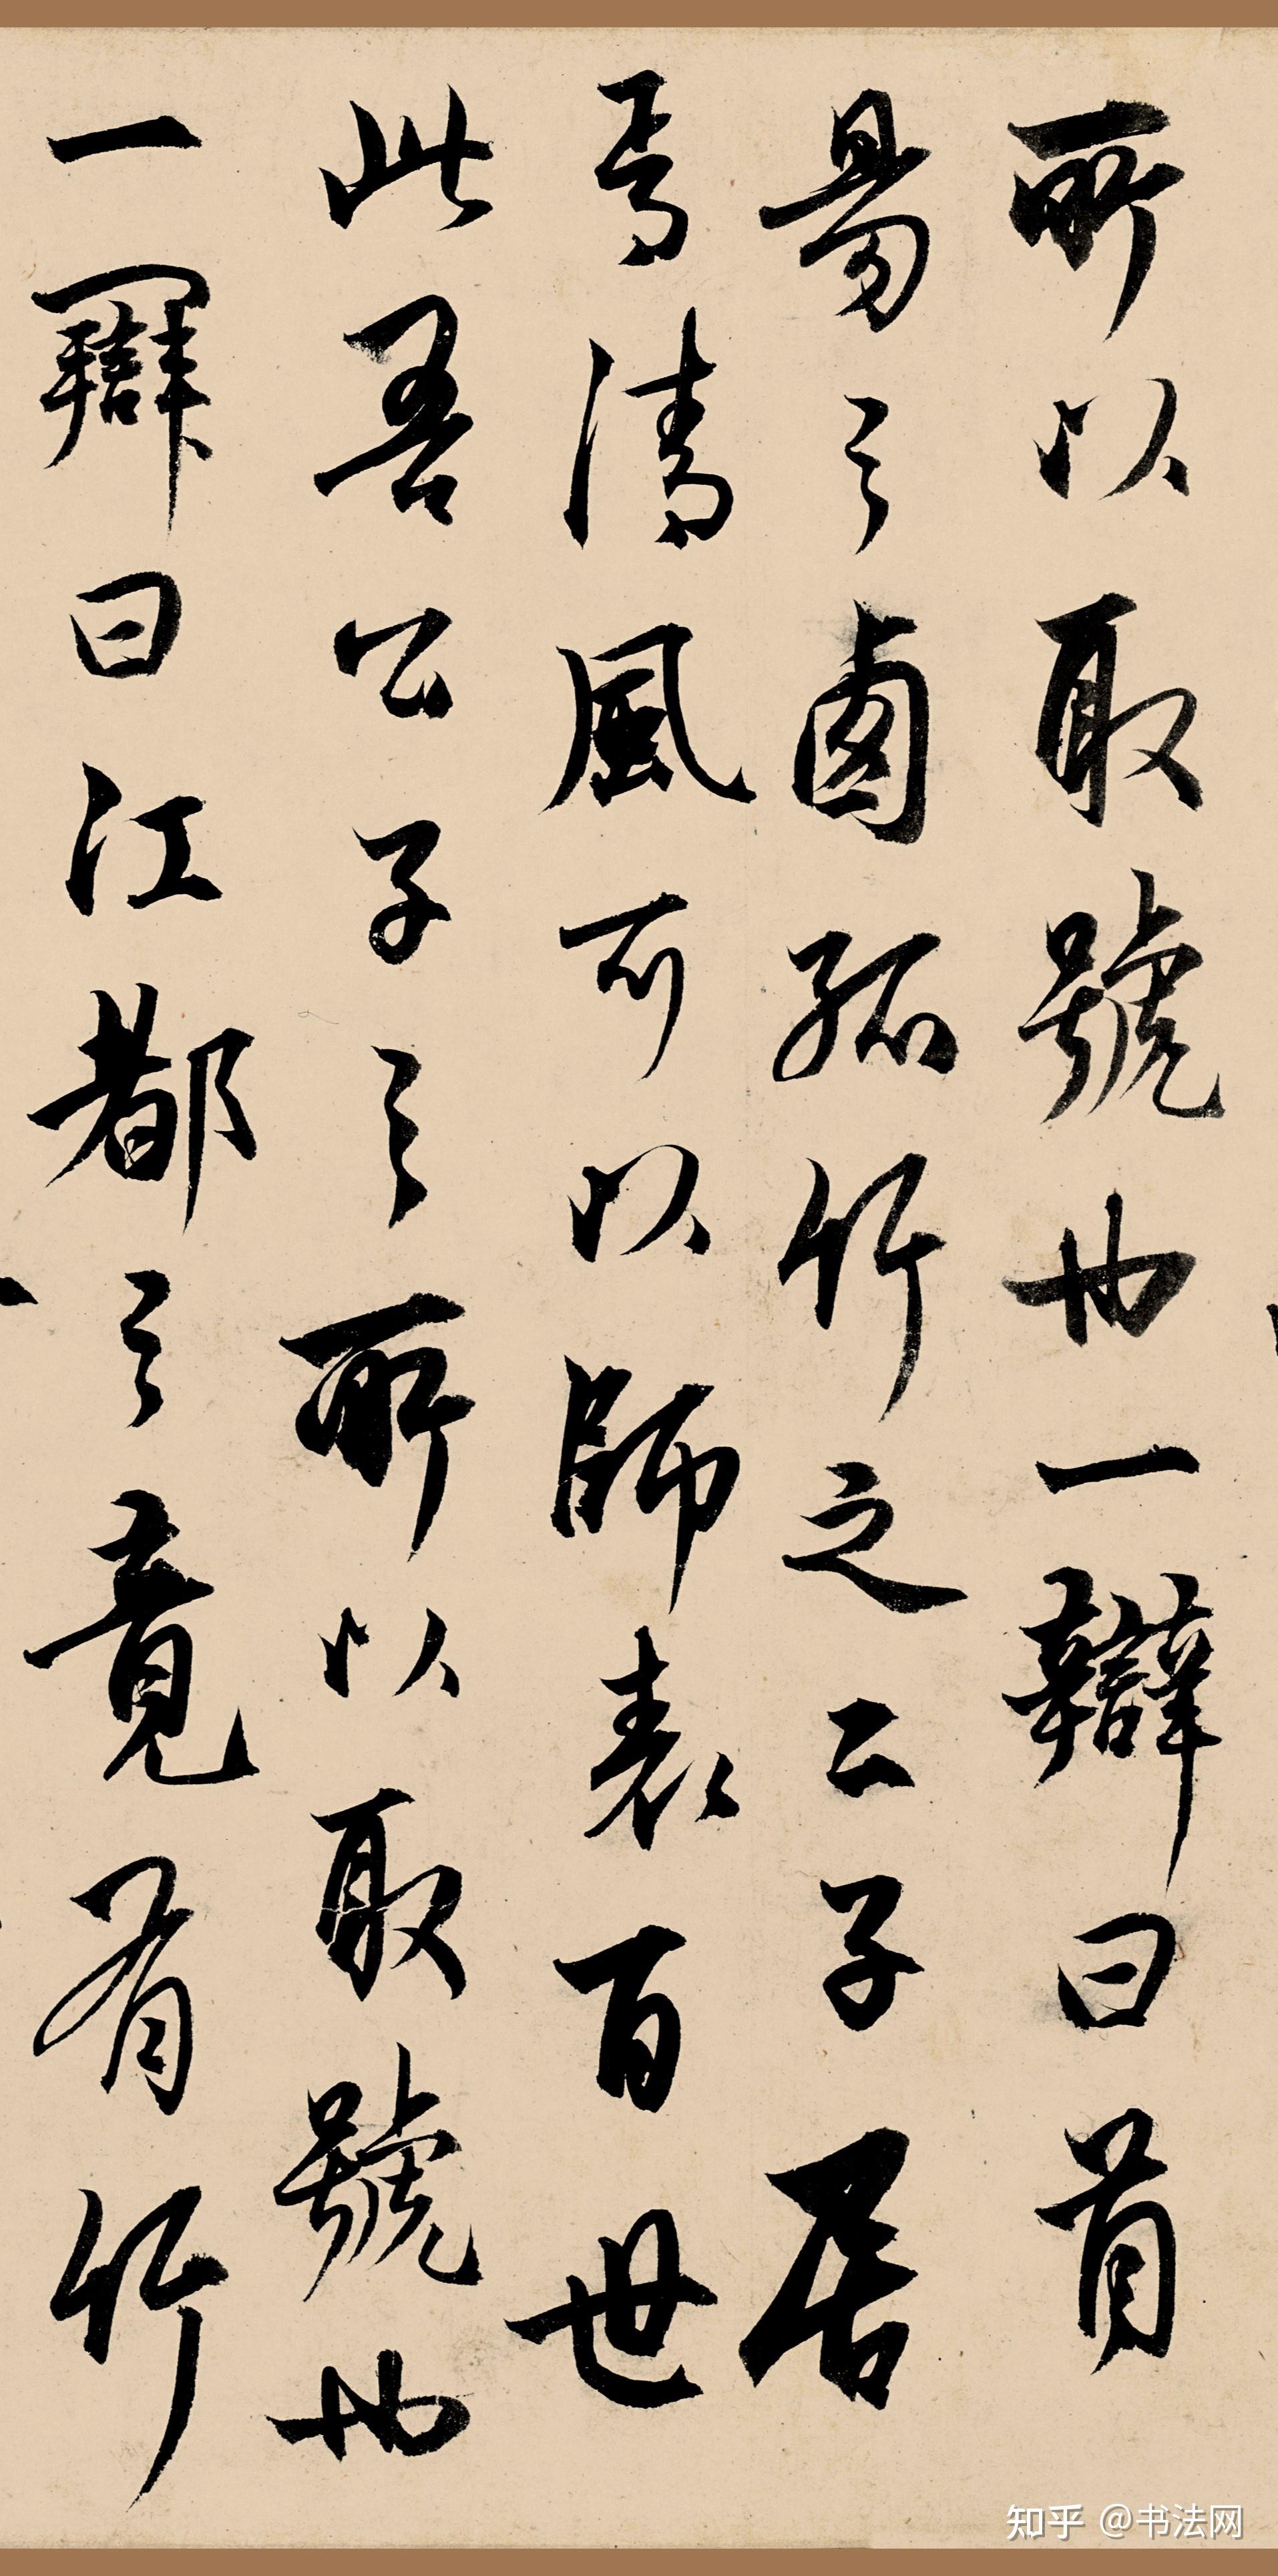 所以取號也一辯曰首
昜之卥孤竹之二子居
焉清風可以師表百世
此吾公子之所以取號也
一辯曰江都之竟有竹
知乎 @书法网